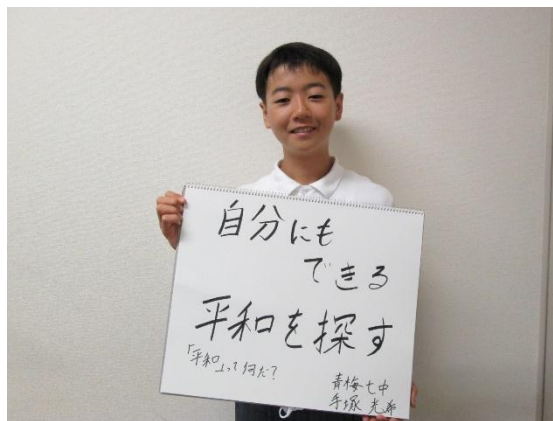 自分にも
できる
平和を探す
「平和」って何だ?
青梅七中
手塚 光希